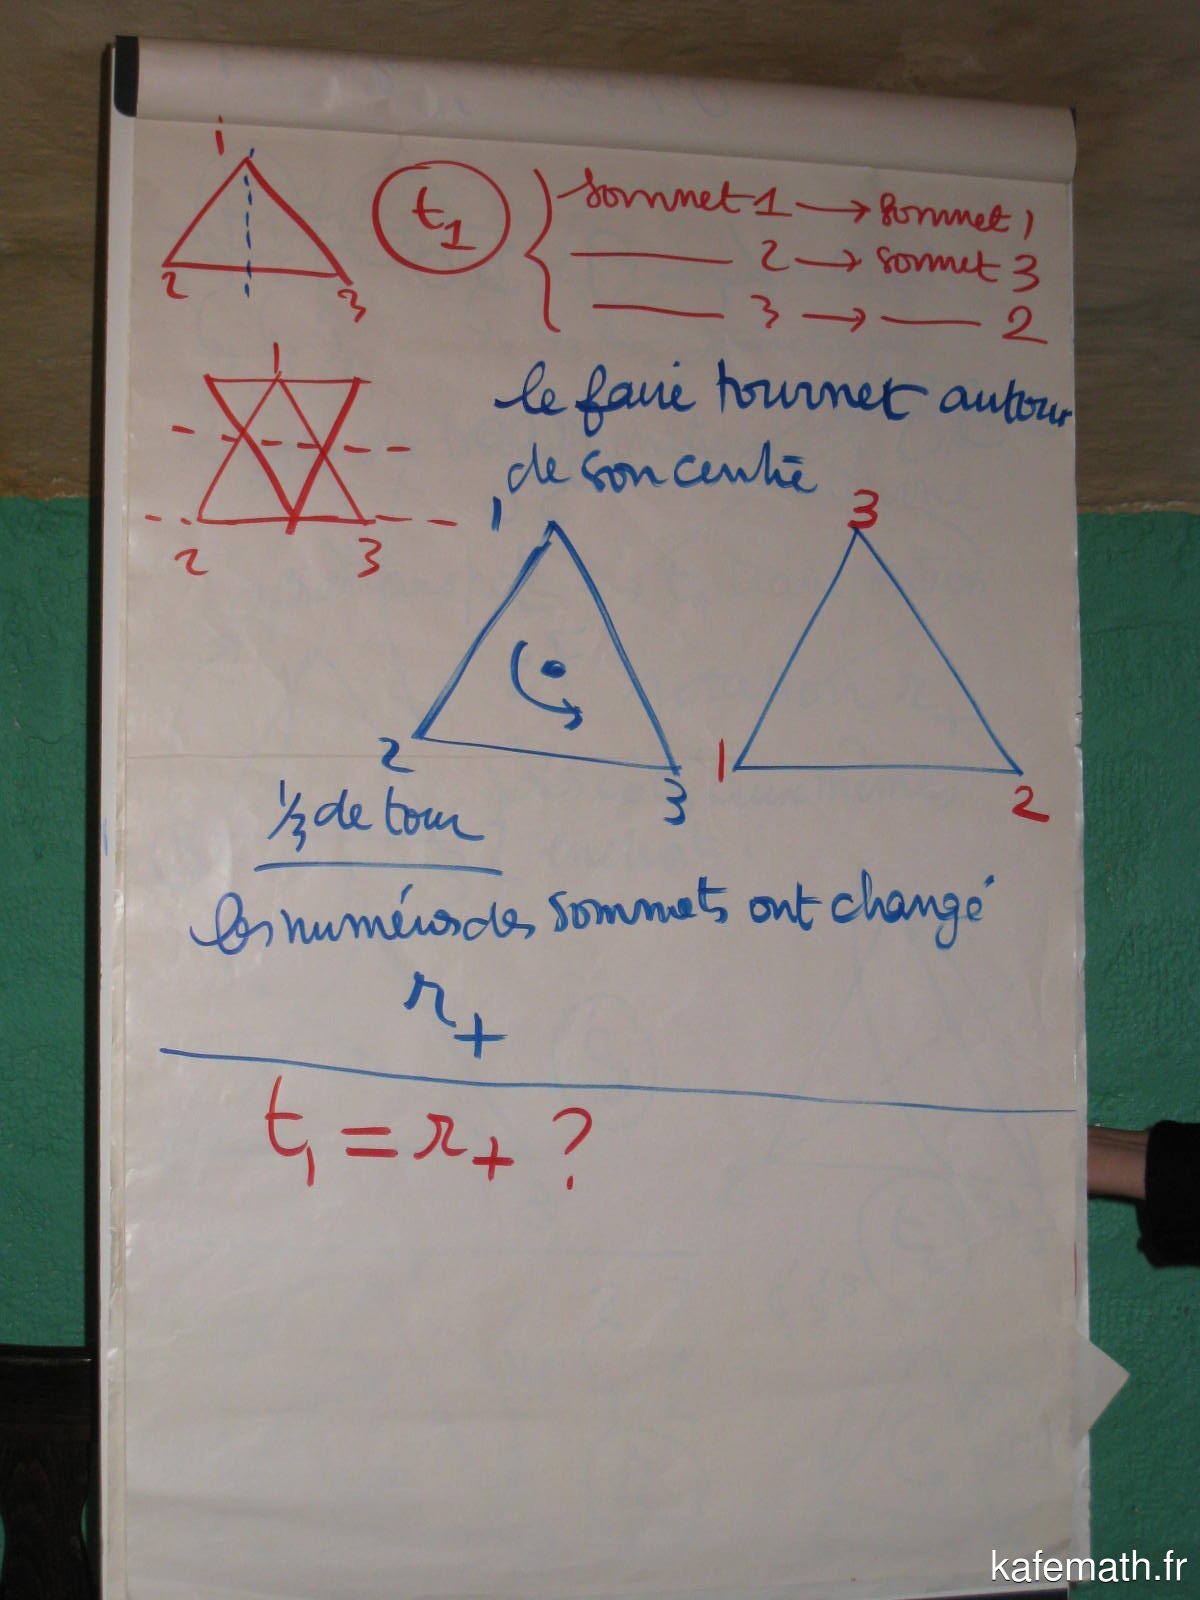 1
2 3
t1
sommet 1 → sommet 1
2 → sommet 3
3 → 2
1
2 3
le faire tourner autour
de son centre
1
2
3
3
1
2
1/3 de tour
les numéros des sommets ont changé
r+
t1 = r+ ?
kafemath.fr